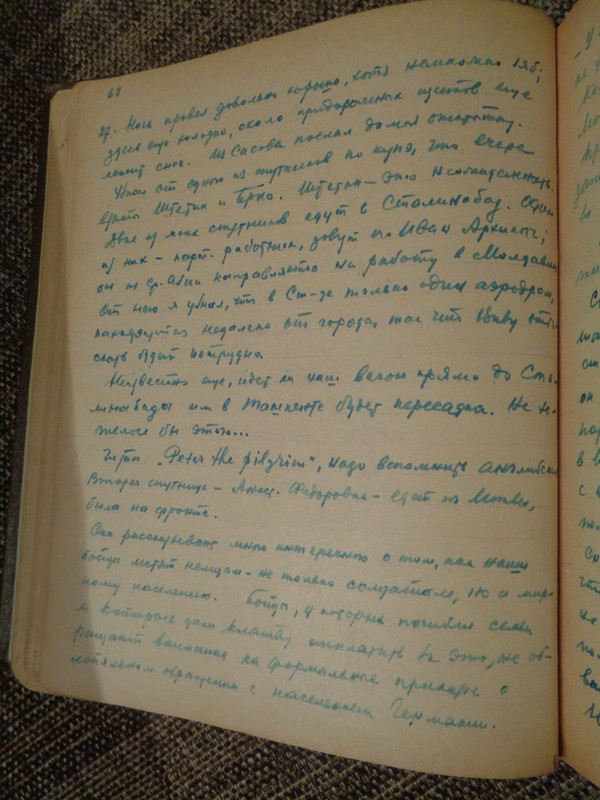 68
27. Ночь провел довольно хорошо, хотя немножко зяб;
здесь еще холодно, около придорожных щитов еще
лежит снег. Из Сасова послал домой открытку.
Узнал от одного из спутников по купе, что вчера
взяты Штетин и Брно. Штетин – это неожиданность.
Двое из моих спутников едут в Сталинабад. Один
из них – парт. работник, зовут его Иван Архипыч;
он из Ср. Азии направляется на работу в Молдавию
От него я узнал, что в Ст-де только один аэродром,
находящийся недалеко от города, так что Вову
будет нетрудно.
Неизвестно еще, идет ли наш вагон прямо до Ста-
линабада или в Ташкенте будет пересадка. Не же-
лал бы этого...
Читаю „Peter the pilgrim“, надо вспомнить английский
Вторая спутница – Федоровна – едет из
была на фронте.
Она рассказывает много интересного о том, как наши
бойцы мстят немцам – не только солдатам, но и мир-
ному населению. Бойцы, у которых погибли семьи
и которые дали клятву отплатить за это, не об-
ращают внимания на формальные приказы о
лояльном обращении с населением Германии.